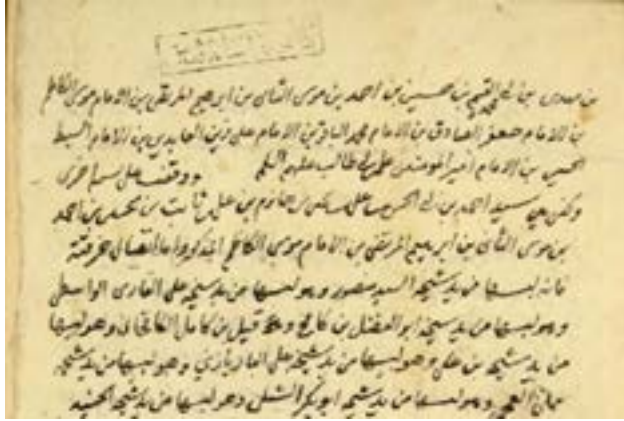 بن مهدى بن ابى القسم بن حسين بن احمد بن موسى الثانى بن ابرهيم المرتضى بن الامام موسى الكاظم
بن الامام جعفر الصادق بن الامام محمد الباقر بن الامام على زين العابدين بن الامام السبط
الحسين بن الامام امير المومنين على بن ابى طالب عليهم السلم ووقفت على نسبه اخرى
وكنى سيد احمد بن على بن حازم بن على بن ثابت بن احمد
بن موسى الثانى بن ابرهيم المرتضى بن الامام موسى الكاظم المذكور واما اتصال خرقته
فانه لبسها من يد شيخه السيد منصور وهو لبسها من يد شيخه على القارى الواسطى
وهو لبسها من يد شيخه ابو الفضل بن كامخ وهو بن كامل وهو لبسها
من يد شيخه بن على وهو لبسها من يد شيخه على وهو لبسها من يد شيخه
العجمى وهو لبسها من يد شيخه ابو بكر الشبلى وهو لبسها من يد شيخه الجنيد